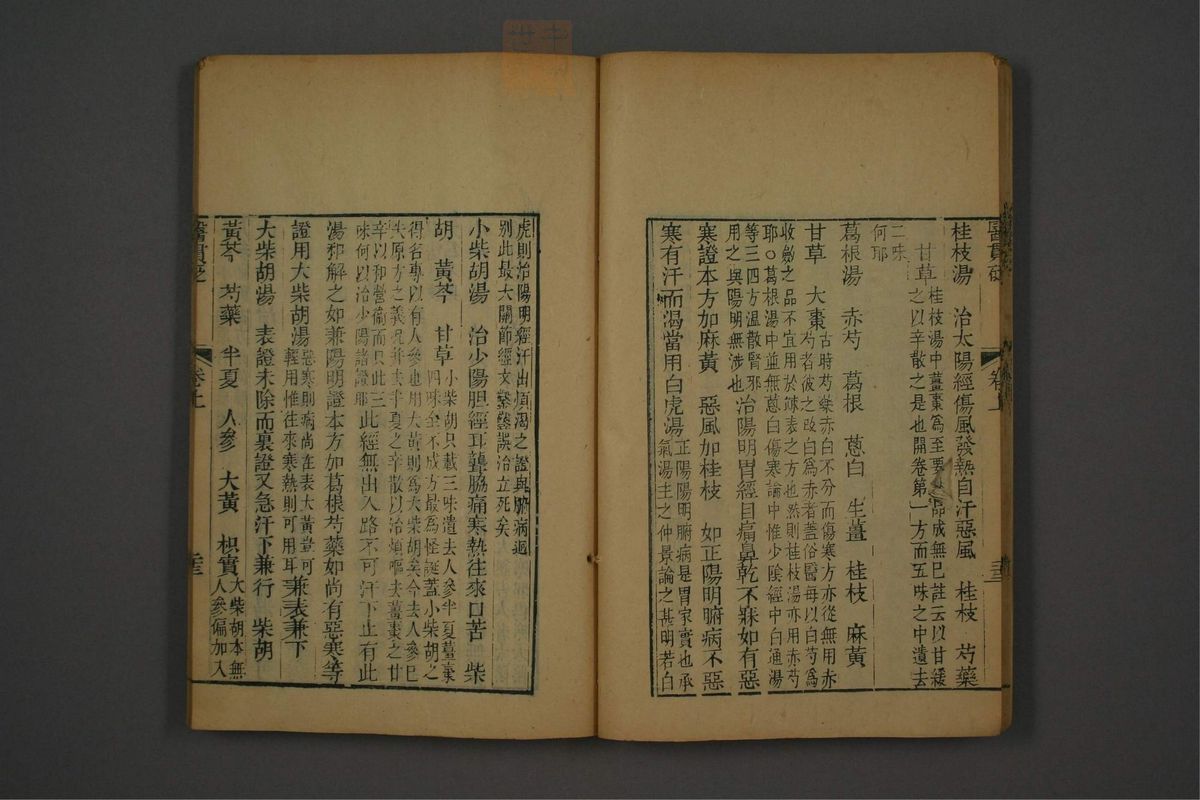 桂枝湯　治太陽經傷風發熱自汗惡風　桂枝　芍藥
甘草
桂枝湯中薑棗爲至要
品成無已註云以甘緩
之以辛散之是也開卷第一方而五味之中遺去
二味
何耶
葛根湯　赤芍　葛根　葱白　生薑　桂枝　麻黃
甘草　大棗
古時芍藥赤白不分而傷寒方亦從無用赤
芍者彼之改白爲赤者蓋俗醫每以白芍爲
收斂之品不宜用於
表之方也然則桂枝湯亦用赤芍
耶○葛根湯中並無葱白傷寒論中惟少陰經中白通湯
等三四方溫散腎邪
用之與陽明無涉也
治陽明胃經目痛鼻乾不寐如有惡
寒證本方加麻黃　惡風加桂枝　如正陽明腑病不惡
寒有汗而渴當用白虎湯
正陽陽明腑病是胃家實也承
氣湯主之仲景論之甚明若白
虎則治陽明經汗出煩渴之證與腑病迥
別此最大關節經文鑿鑿誤治立死矣
小柴胡湯　治少陽胆經耳聾脇痛寒熱往來口苦　柴
胡　黃芩　甘草
小柴胡只載三味遺去人參半夏薑棗
四味全不成方最爲怪誕蓋小柴胡之
得名專以有人參也用大黃則爲大柴胡矣今去人參已
失原方之義況并去半夏之辛散以治煩嘔去薑棗之甘
辛以和營衞而只此三
味何以治少陽諸證耶
此經無出入路不可汗下止有此
湯和解之如兼陽明證本方加葛根芍藥如尚有惡寒等
證用大柴胡湯
惡寒則病尚在表大黃豈可
輕用惟往來寒熱則可用耳
兼表兼下
大柴胡湯　表證未除而裏證又急汗下兼行　柴胡
黃芩　芍藥　半夏　人參　大黃　枳實
大柴胡本無
人參偏加入
醫貫砭
卷上
三十二
醫貫砭
卷上
三十三